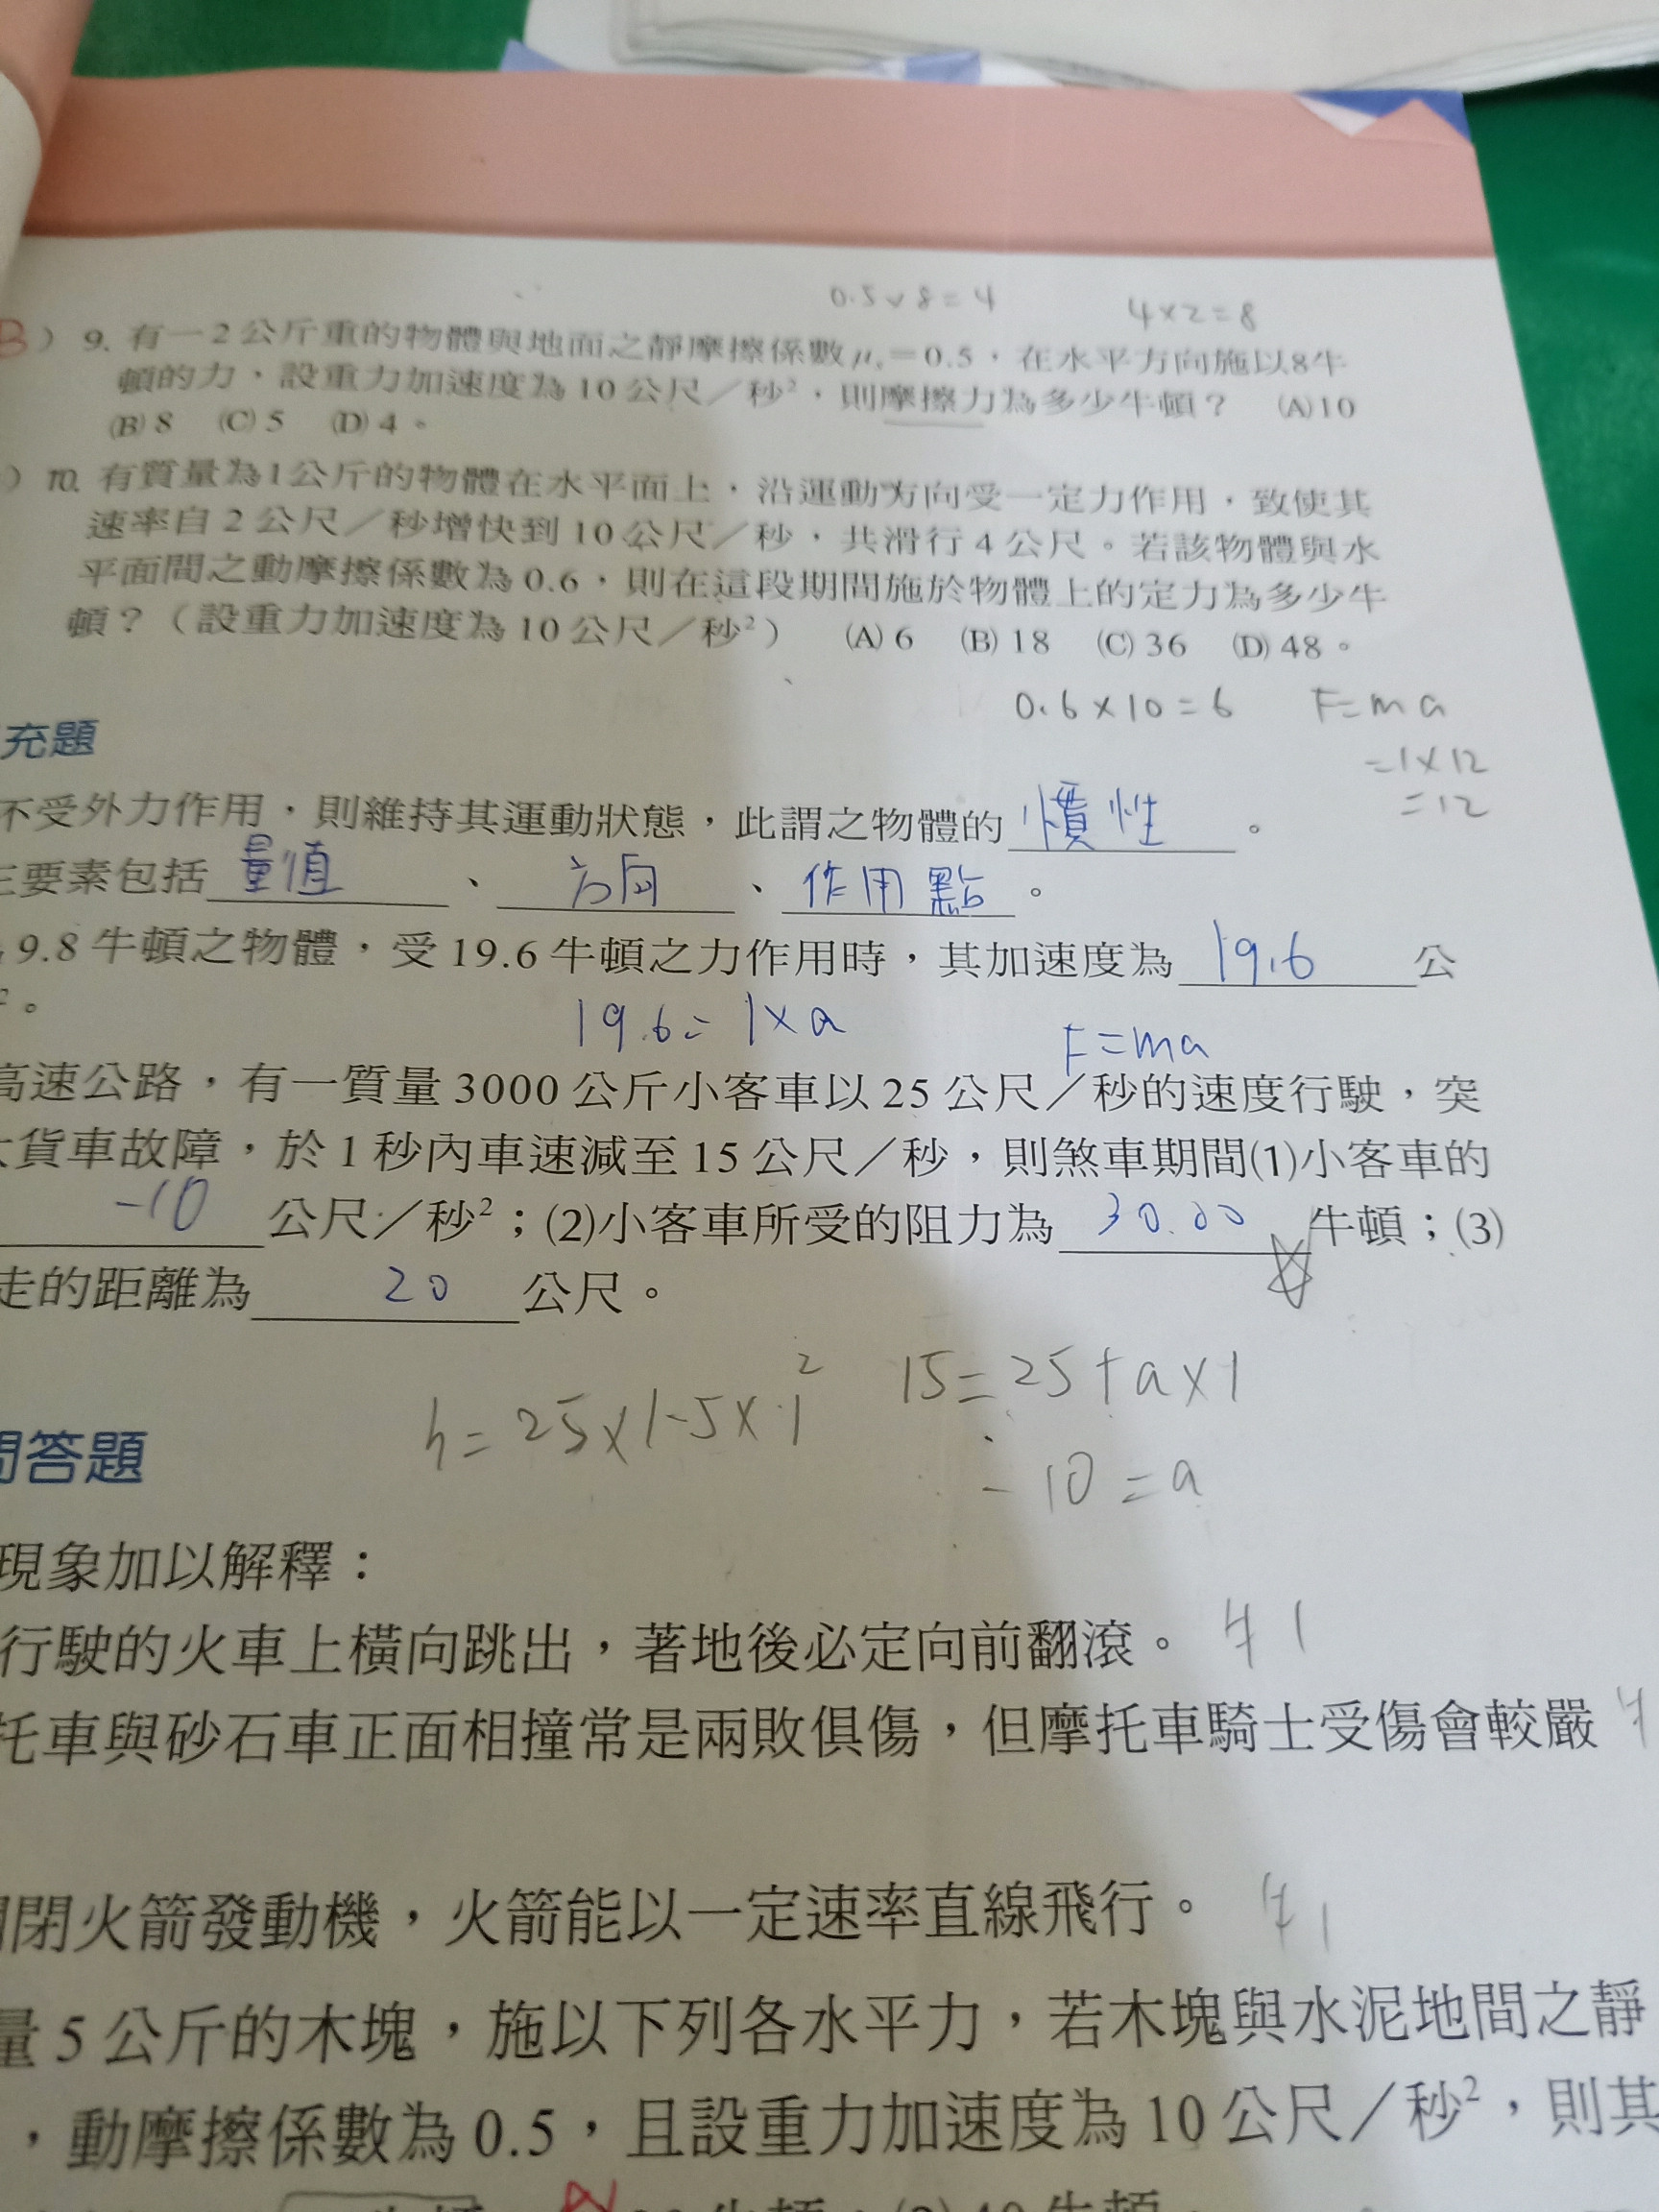 0.5×8=4 4×2=8
B) 9. 有一2公斤重的物體與地面之靜摩擦係數μs=0.5,在水平方向施以8牛
頓的力、設重力加速度為10公尺/秒²,則摩擦力為多少牛頓? (A)10
(B)8 (C)5 (D)4。
) 10. 有質量為1公斤的物體在水平面上,沿運動方向受一定力作用,致使其
速率自2公尺/秒增快到10公尺/秒,共滑行4公尺。若該物體與水
平面間之動摩擦係數為0.6,則在這段期間施於物體上的定力為多少牛
頓?(設重力加速度為10公尺/秒²) (A)6 (B)18 (C)36 (D)48。
0.6×10=6 F=ma
=1×12
=12
充題
不受外力作用,則維持其運動狀態,此謂之物體的 慣性 。
要素包括 量值 、 方向 、 作用點 。
9.8牛頓之物體,受19.6牛頓之力作用時,其加速度為 19.6 公
²。
19.6=1×a F=ma
高速公路,有一質量3000公斤小客車以25公尺/秒的速度行駛,突
貨車故障,於1秒內車速減至15公尺/秒,則煞車期間(1)小客車的
-10 公尺/秒²;(2)小客車所受的阻力為 30.00 牛頓;(3)
走的距離為 20 公尺。
h=25×1-5×1² 15=25+a×1
-10=a
問答題
現象加以解釋:
行駛的火車上橫向跳出,著地後必定向前翻滾。
托車與砂石車正面相撞常是兩敗俱傷,但摩托車騎士受傷會較嚴
閉火箭發動機,火箭能以一定速率直線飛行。
量5公斤的木塊,施以下列各水平力,若木塊與水泥地間之靜
,動摩擦係數為0.5,且設重力加速度為10公尺/秒²,則其